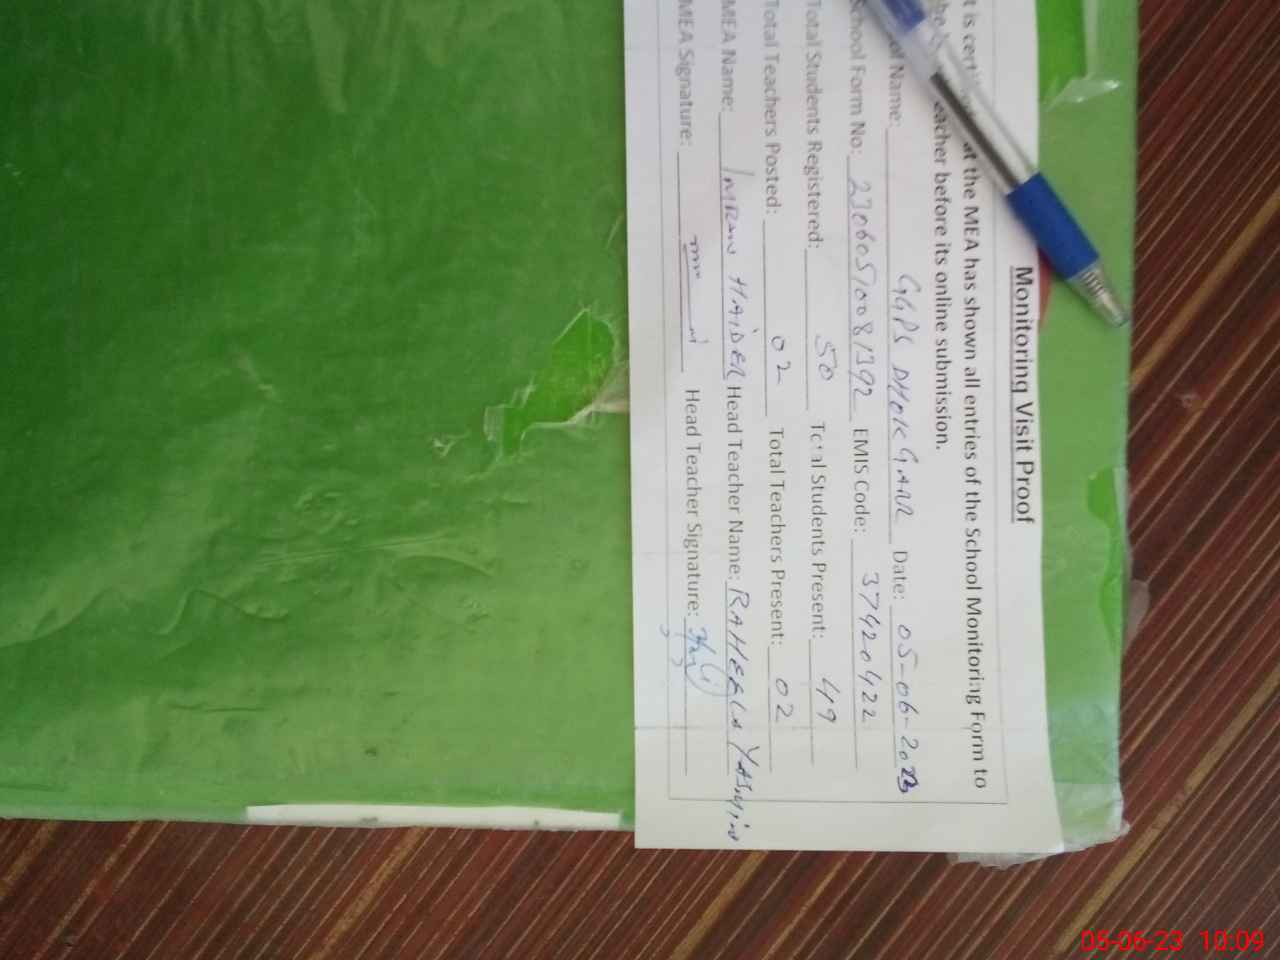 Monitoring Visit Proof
t is cert at the MEA has shown all entries of the School Monitoring Form to
be eacher before its online submission.
ol Name: GGPS DHOK GARR Date: 05-06-2023
School Form No: 23060510081392 EMIS Code: 37420422
Total Students Registered: 50 Total Students Present: 49
Total Teachers Posted: 02 Total Teachers Present: 02
MEA Name: IMRAN HAIDER Head Teacher Name: RAHEELA YASMIN
MEA Signature: Head Teacher Signature:
05-06-23 10:09